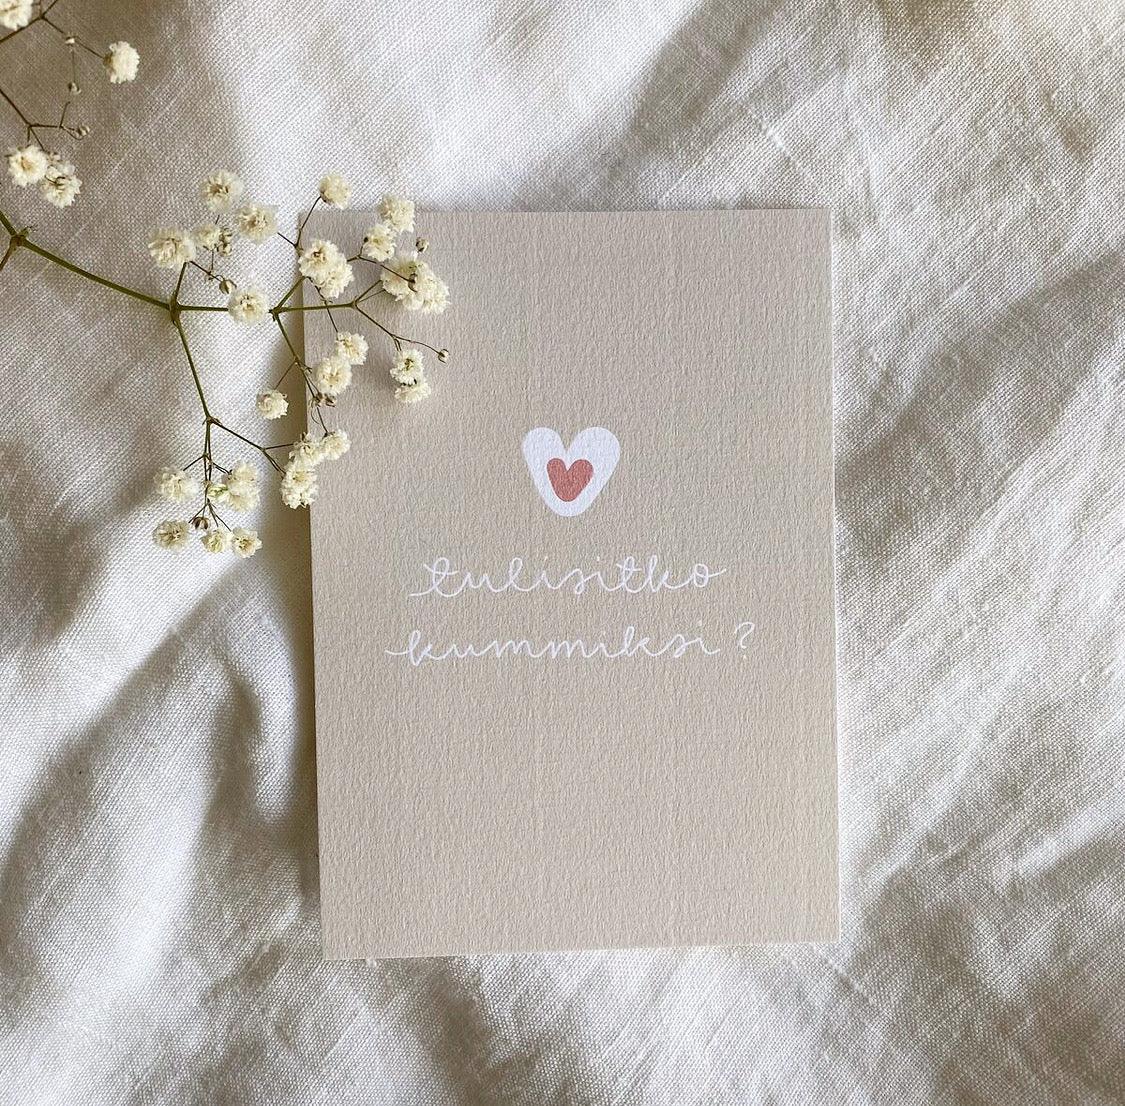 tulisitko
kummiksi ?